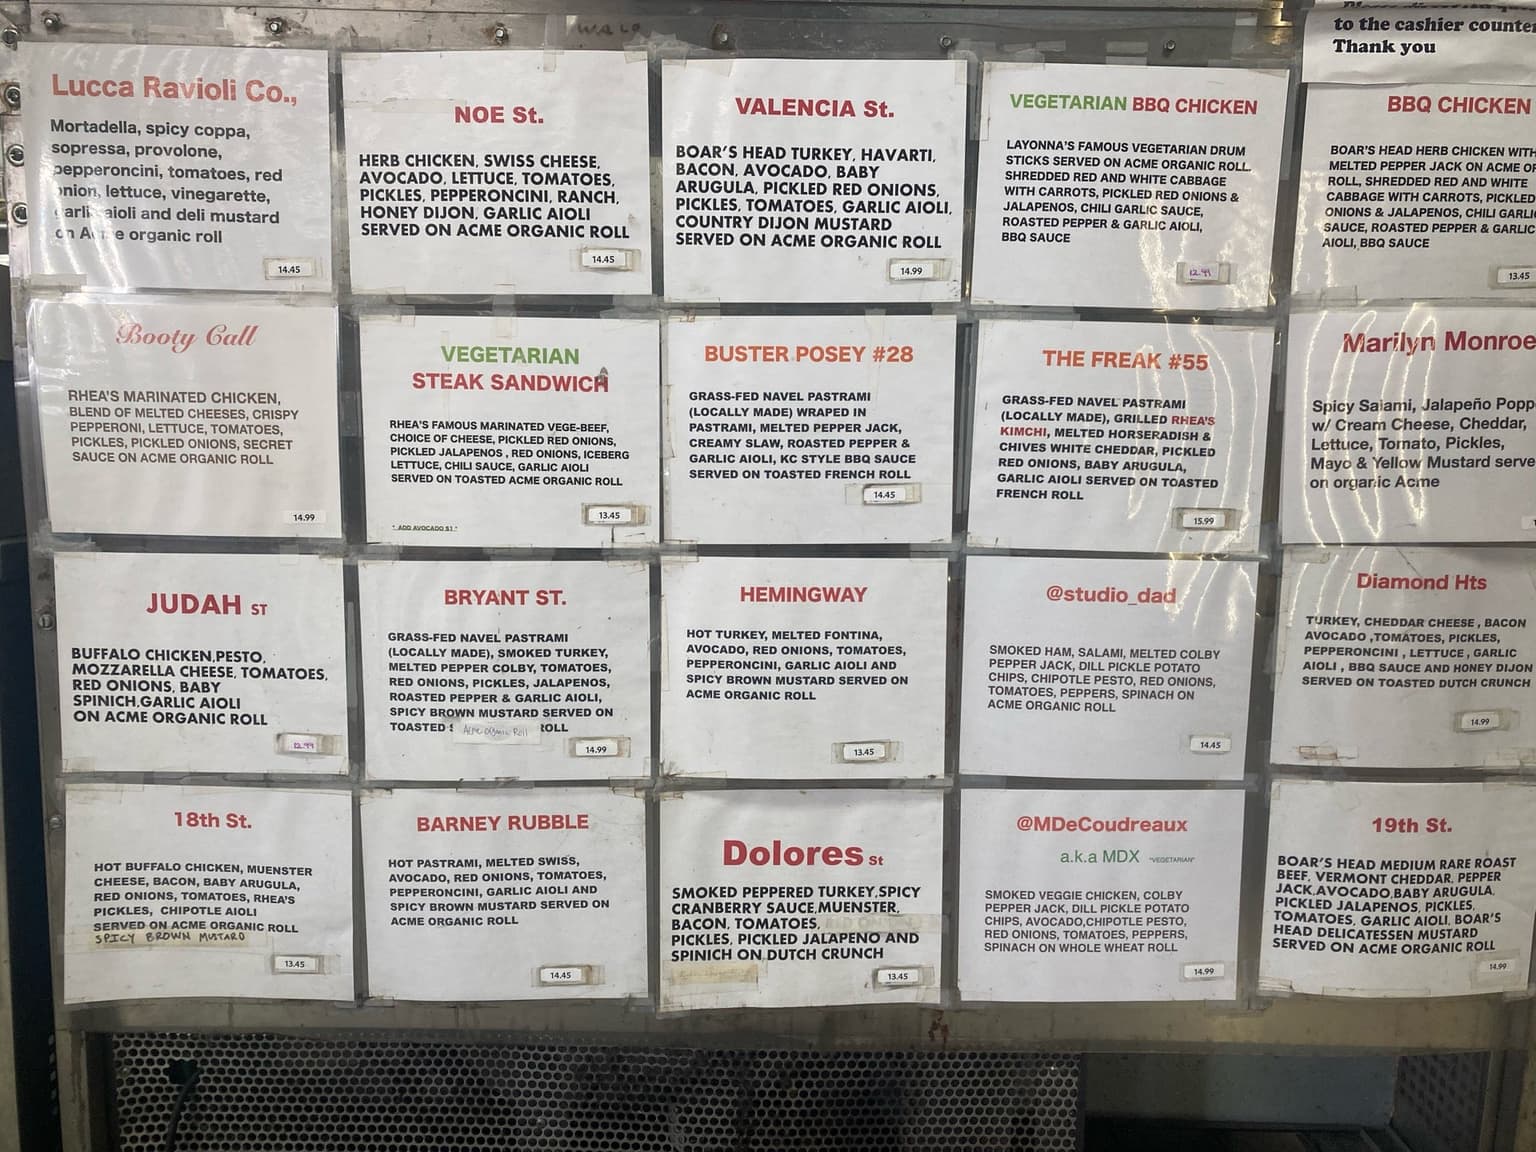 to the cashier counter
Thank you
Lucca Ravioli Co.,
Mortadella, spicy coppa,
sopressa, provolone,
pepperoncini, tomatoes, red
onion, lettuce, vinegarette,
garlic aioli and deli mustard
on Acme organic roll
14.45
NOE St.
HERB CHICKEN, SWISS CHEESE,
AVOCADO, LETTUCE, TOMATOES,
PICKLES, PEPPERONCINI, RANCH,
HONEY DIJON, GARLIC AIOLI
SERVED ON ACME ORGANIC ROLL
14.45
VALENCIA St.
BOAR'S HEAD TURKEY, HAVARTI,
BACON, AVOCADO, BABY
ARUGULA, PICKLED RED ONIONS,
PICKLES, TOMATOES, GARLIC AIOLI,
COUNTRY DIJON MUSTARD
SERVED ON ACME ORGANIC ROLL
14.99
VEGETARIAN BBQ CHICKEN
LAYONNA'S FAMOUS VEGETARIAN DRUM
STICKS SERVED ON ACME ORGANIC ROLL.
SHREDDED RED AND WHITE CABBAGE
WITH CARROTS, PICKLED RED ONIONS &
JALAPENOS, CHILI GARLIC SAUCE,
ROASTED PEPPER & GARLIC AIOLI,
BBQ SAUCE
12.99
BBQ CHICKEN
BOAR'S HEAD HERB CHICKEN WITH
MELTED PEPPER JACK ON ACME
ROLL, SHREDDED RED AND WHITE
CABBAGE WITH CARROTS, PICKLED
ONIONS & JALAPENOS, CHILI GARLIC
SAUCE, ROASTED PEPPER & GARLIC
AIOLI, BBQ SAUCE
13.45
Booty Call
RHEA'S MARINATED CHICKEN,
BLEND OF MELTED CHEESES, CRISPY
PEPPERONI, LETTUCE, TOMATOES,
PICKLES, PICKLED ONIONS, SECRET
SAUCE ON ACME ORGANIC ROLL
14.99
VEGETARIAN
STEAK SANDWICH
RHEA'S FAMOUS MARINATED VEGE-BEEF,
CHOICE OF CHEESE, PICKLED RED ONIONS,
PICKLED JALAPENOS , RED ONIONS, ICEBERG
LETTUCE, CHILI SAUCE, GARLIC AIOLI
SERVED ON TOASTED ACME ORGANIC ROLL
* ADD AVOCADO $1 *
13.45
BUSTER POSEY #28
GRASS-FED NAVEL PASTRAMI
(LOCALLY MADE) WRAPED IN
PASTRAMI, MELTED PEPPER JACK,
CREAMY SLAW, ROASTED PEPPER &
GARLIC AIOLI, KC STYLE BBQ SAUCE
SERVED ON TOASTED FRENCH ROLL
14.45
THE FREAK #55
GRASS-FED NAVEL PASTRAMI
(LOCALLY MADE), GRILLED RHEA'S
KIMCHI, MELTED HORSERADISH &
CHIVES WHITE CHEDDAR, PICKLED
RED ONIONS, BABY ARUGULA,
GARLIC AIOLI SERVED ON TOASTED
FRENCH ROLL
15.99
Marilyn Monroe
Spicy Salami, Jalapeño
w/ Cream Cheese, Cheddar,
Lettuce, Tomato, Pickles,
Mayo & Yellow Mustard
on organic Acme
JUDAH ST
BUFFALO CHICKEN,PESTO,
MOZZARELLA CHEESE, TOMATOES,
RED ONIONS, BABY
SPINICH,GARLIC AIOLI
ON ACME ORGANIC ROLL
12.99
BRYANT ST.
GRASS-FED NAVEL PASTRAMI
(LOCALLY MADE), SMOKED TURKEY,
MELTED PEPPER COLBY, TOMATOES,
RED ONIONS, PICKLES, JALAPENOS,
ROASTED PEPPER & GARLIC AIOLI,
SPICY BROWN MUSTARD SERVED ON
TOASTED Acme Organic Roll ROLL
14.99
HEMINGWAY
HOT TURKEY, MELTED FONTINA,
AVOCADO, RED ONIONS, TOMATOES,
PEPPERONCINI, GARLIC AIOLI AND
SPICY BROWN MUSTARD SERVED ON
ACME ORGANIC ROLL
13.45
@studio_dad
SMOKED HAM, SALAMI, MELTED COLBY
PEPPER JACK, DILL PICKLE POTATO
CHIPS, CHIPOTLE PESTO, RED ONIONS,
TOMATOES, PEPPERS, SPINACH ON
ACME ORGANIC ROLL
14.45
Diamond Hts
TURKEY, CHEDDAR CHEESE , BACON
AVOCADO ,TOMATOES, PICKLES,
PEPPERONCINI , LETTUCE , GARLIC
AIOLI , BBQ SAUCE AND HONEY DIJON
SERVED ON TOASTED DUTCH CRUNCH
14.99
18th St.
HOT BUFFALO CHICKEN, MUENSTER
CHEESE, BACON, BABY ARUGULA,
RED ONIONS, TOMATOES, RHEA'S
PICKLES, CHIPOTLE AIOLI
SERVED ON ACME ORGANIC ROLL
SPICY BROWN MUSTARD
13.45
BARNEY RUBBLE
HOT PASTRAMI, MELTED SWISS,
AVOCADO, RED ONIONS, TOMATOES,
PEPPERONCINI, GARLIC AIOLI AND
SPICY BROWN MUSTARD SERVED ON
ACME ORGANIC ROLL
14.45
Dolores St
SMOKED PEPPERED TURKEY,SPICY
CRANBERRY SAUCE,MUENSTER,
BACON, TOMATOES,
PICKLES, PICKLED JALAPENO AND
SPINICH ON DUTCH CRUNCH
13.45
@MDeCoudreaux
a.k.a MDX "VEGETARIAN"
SMOKED VEGGIE CHICKEN, COLBY
PEPPER JACK, DILL PICKLE POTATO
CHIPS, AVOCADO,CHIPOTLE PESTO,
RED ONIONS, TOMATOES, PEPPERS,
SPINACH ON WHOLE WHEAT ROLL
14.99
19th St.
BOAR'S HEAD MEDIUM RARE ROAST
BEEF, VERMONT CHEDDAR, PEPPER
JACK,AVOCADO,BABY ARUGULA,
PICKLED JALAPENOS, PICKLES,
TOMATOES, GARLIC AIOLI, BOAR'S
HEAD DELICATESSEN MUSTARD
SERVED ON ACME ORGANIC ROLL
14.99